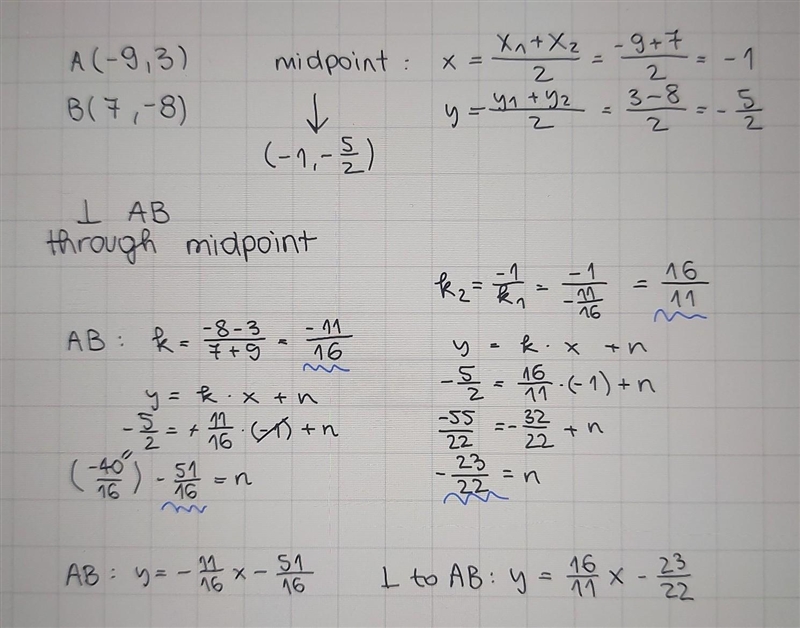 A(-9,3)
B(7,-8)
midpoint : x = (x₁+x₂)/2 = (-9+7)/2 = -1
y = (y₁+y₂)/2 = (3-8)/2 = -5/2
↓
(-1,-5/2)
⊥ AB
through midpoint
AB : k = (-8-3)/(7+9) = -11/16
y = k · x + n
-5/2 = + 11/16 · (-1) + n
(-40/16) - 51/16 = n
k₂ = -1/k₁ = -1/(-11/16) = 16/11
y = k · x + n
-5/2 = 16/11 · (-1) + n
-55/22 = -32/22 + n
-23/22 = n
AB: y = -11/16 x - 51/16
⊥ to AB: y = 16/11 x - 23/22